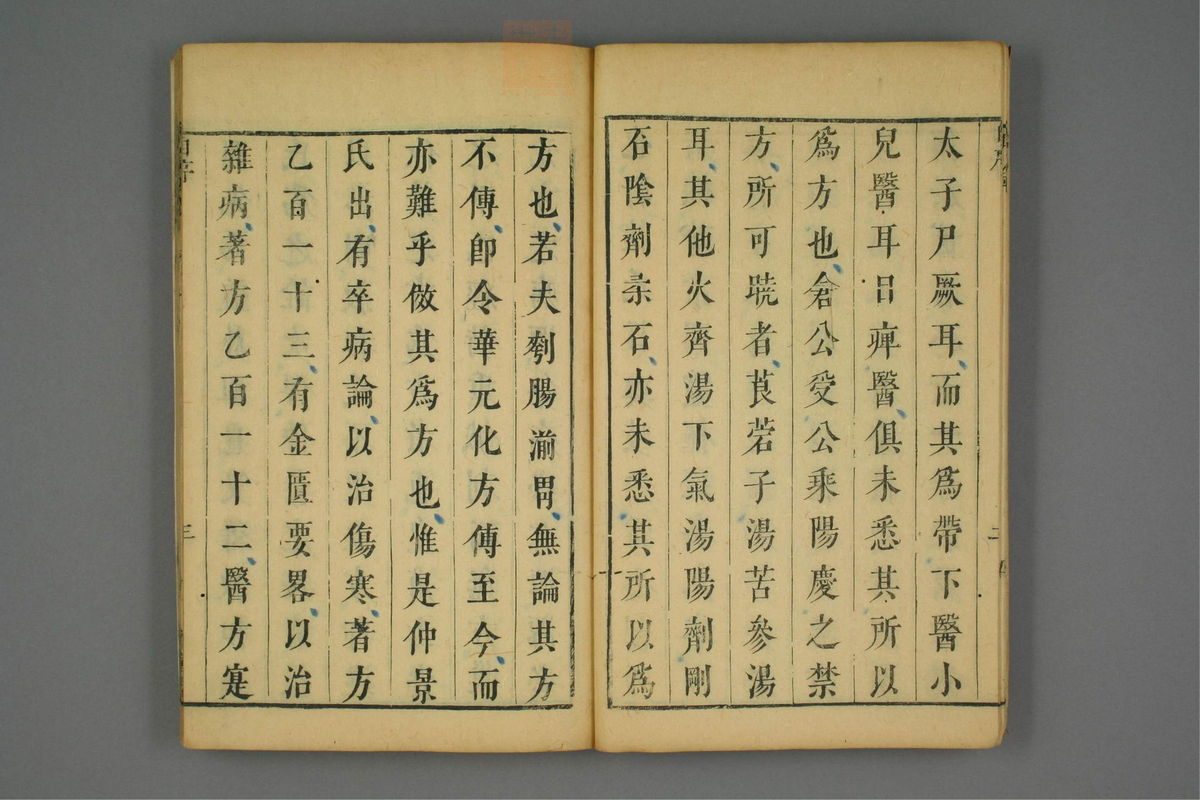 太子尸厥耳而其爲帶下醫小
兒醫耳目痺醫俱未悉其所以
爲方也倉公受公乘陽慶之禁
方所可曉者莨菪子湯苦參湯
耳其他火齊湯下氣湯陽劑剛
石陰劑柔石亦未悉其所以爲
方也若夫刳腸湔胃無論其方
不傳卽令華元化方傳至今而
亦難乎倣其爲方也惟是仲景
氏出有卒病論以治傷寒著方
乙百一十三有金匱要畧以治
雜病著方乙百一十二醫方寔
三